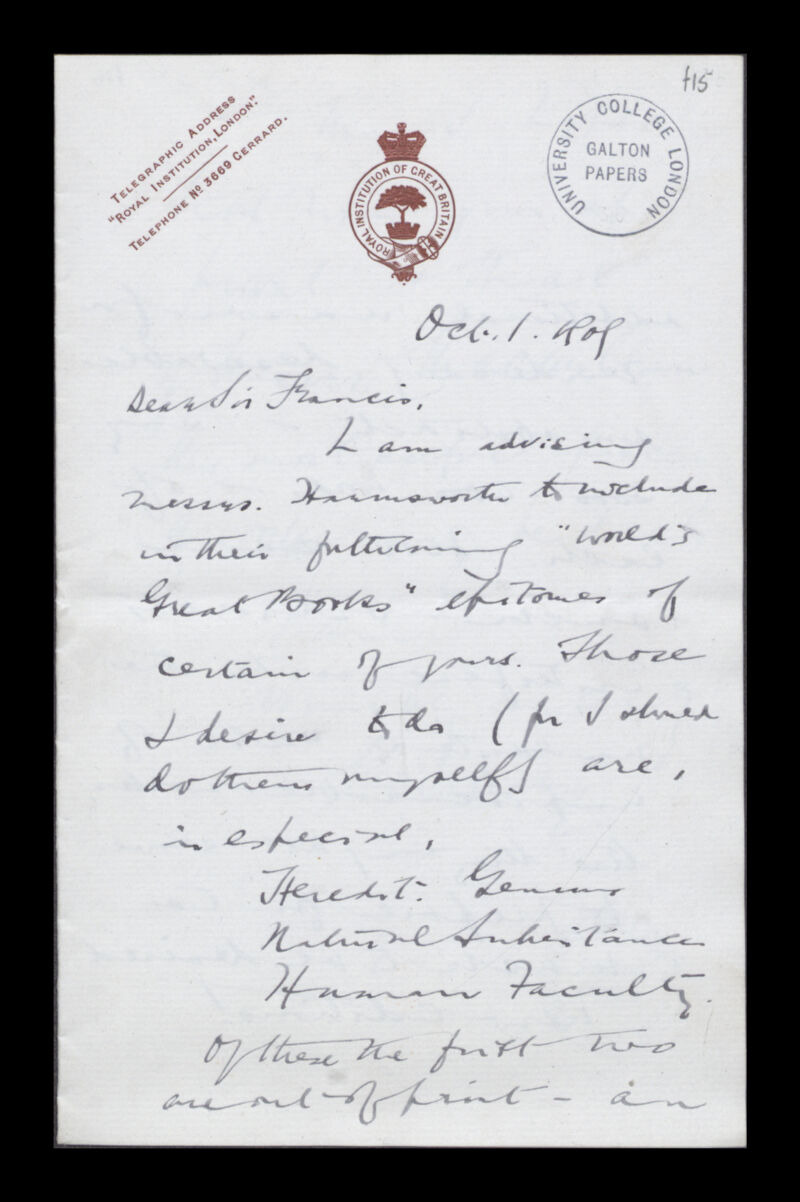 f15
TELEGRAPHIC ADDRESS
"ROYAL INSTITUTION, LONDON."
TELEPHONE No 3669 GERRARD.
ROYAL INSTITUTION OF GREAT BRITAIN
UNIVERSITY COLLEGE LONDON
GALTON
PAPERS
Oct. 1. 1909
Dear Sir Francis,
I am advising
Messrs. Harmsworth to include
in their forthcoming "World's
Great Books" epitomes of
certain of yours. Those
I desire to do (for I should
do them myself) are,
in especial,
Heredit. Genius
Natural Inheritance
Human Faculty.
Of these the first two
are out of print - an